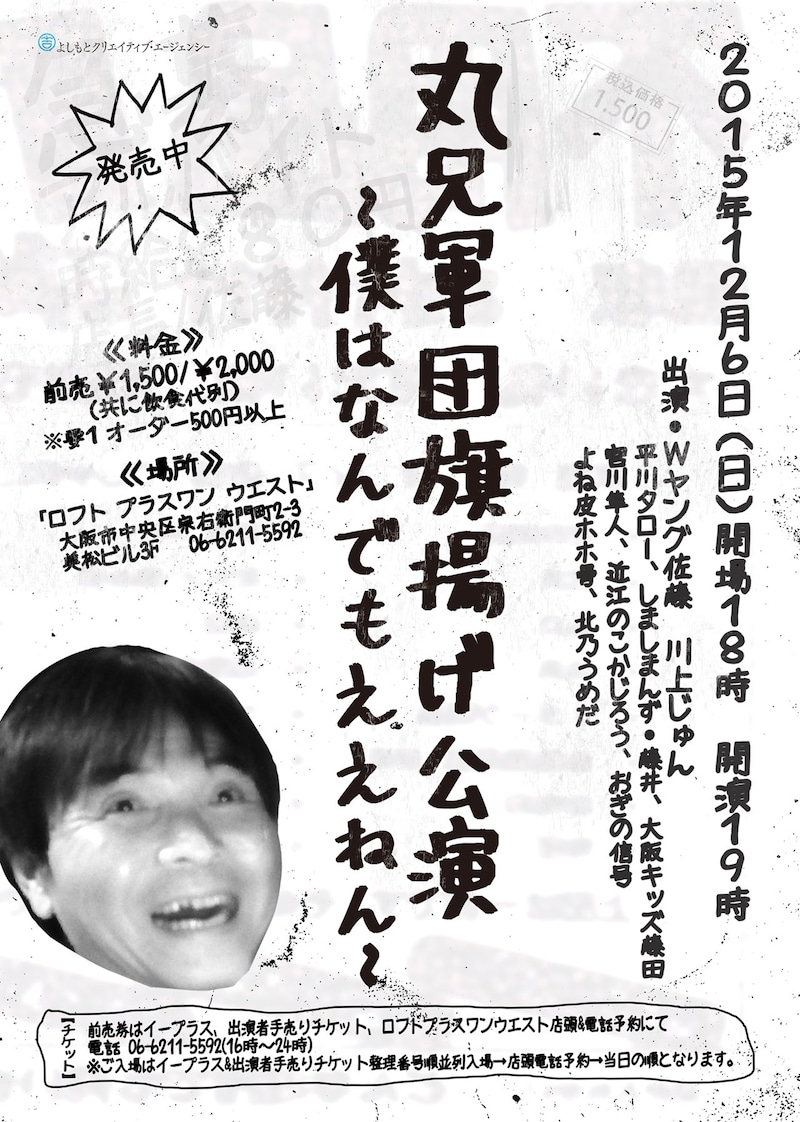 よしもとクリエイティブ・エージェンシー
発売中
税込価格
1.500
2015年12月6日(日)開場18時 開演19時
丸兄軍団旗揚げ公演
~僕はなんでもええねん~
出演・Wヤング佐藤 川上じゅん
平川タロー、しましまんず・藤井、大阪キッズ藤田
宮川隼人、近江のこかじろう、おぎの信号
よね皮ホホ号、北乃うめだ
≪料金≫
前売¥1,500/¥2,000
(共に飲食代別)
※要1オーダー500円以上
≪場所≫
「ロフト プラスワン ウエスト」
大阪市中央区宗右衛門町2-3
美松ビル3F 06-6211-5592
【チケット】
前売券はイープラス、出演者手売りチケット、ロフトプラスワンウエスト店頭&電話予約にて
電話 06-6211-5592(16時~24時)
※ご入場はイープラス&出演者手売りチケット整理番号順並列入場→店頭電話予約→当日の順となります。